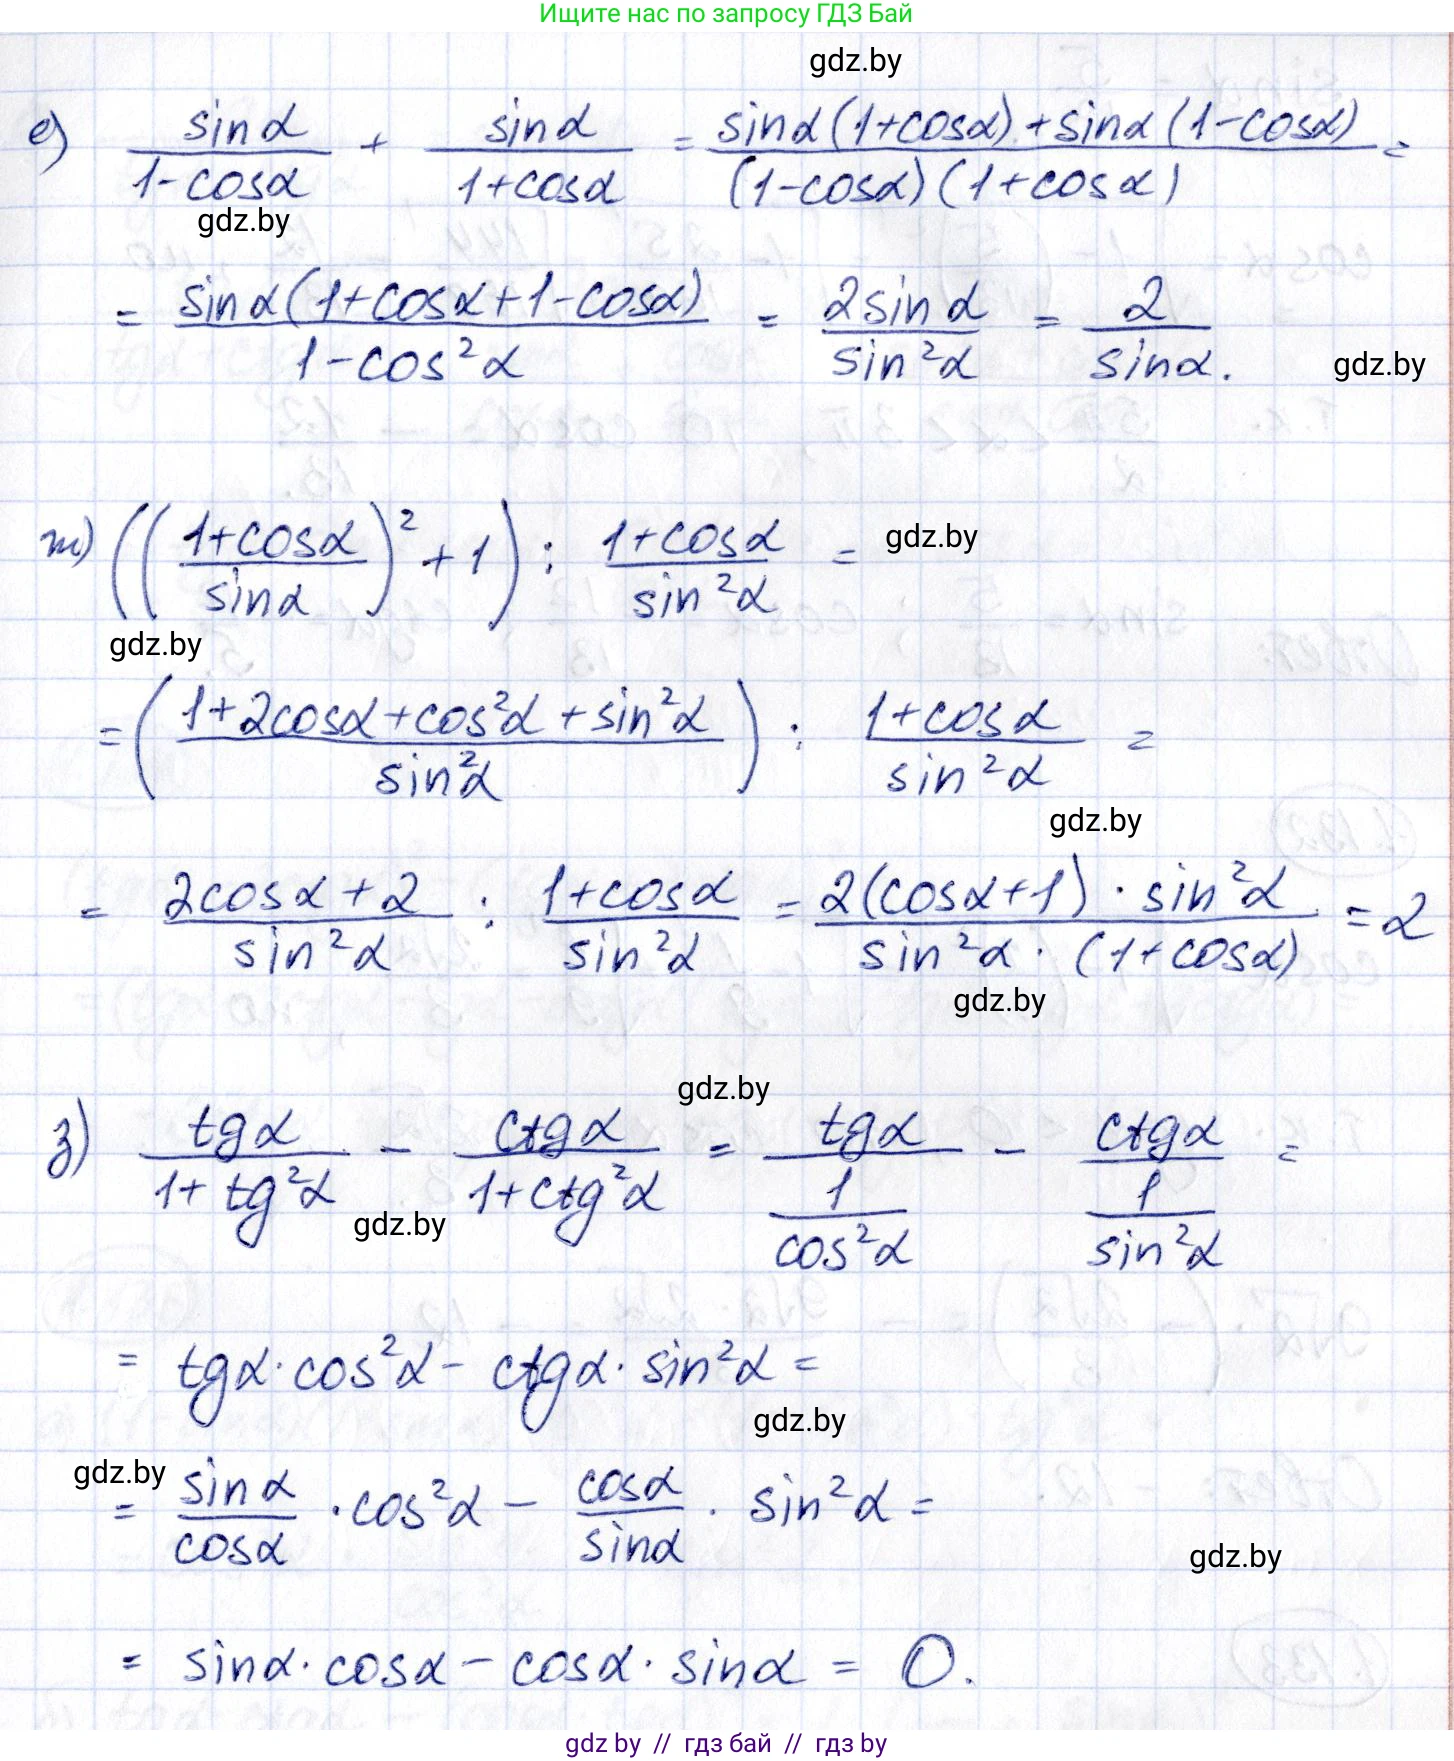 Ищите нас по запросу ГДЗ Бай
gdz.by
е) sinα/(1-cosα) + sinα/(1+cosα) = (sinα(1+cosα)+sinα(1-cosα))/((1-cosα)(1+cosα)) =
gdz.by
= sinα(1+cosα+1-cosα)/(1-cos²α) = 2sinα/sin²α = 2/sinα.
gdz.by
ж) (((1+cosα)/sinα)² + 1) : (1+cosα)/sin²α =
gdz.by
gdz.by
= ((1+2cosα+cos²α+sin²α)/sin²α) : (1+cosα)/sin²α =
gdz.by
= (2cosα+2)/sin²α : (1+cosα)/sin²α = (2(cosα+1)·sin²α)/(sin²α·(1+cosα)) = 2
gdz.by
gdz.by
з) tgα/(1+tg²α) - ctgα/(1+ctg²α) = tgα/(1/cos²α) - ctgα/(1/sin²α) =
gdz.by
= tgα·cos²α - ctgα·sin²α =
gdz.by
gdz.by
= sinα/cosα ·cos²α - cosα/sinα · sin²α =
gdz.by
= sinα·cosα - cosα·sinα = 0.
gdz by // гдз бай // гдз by